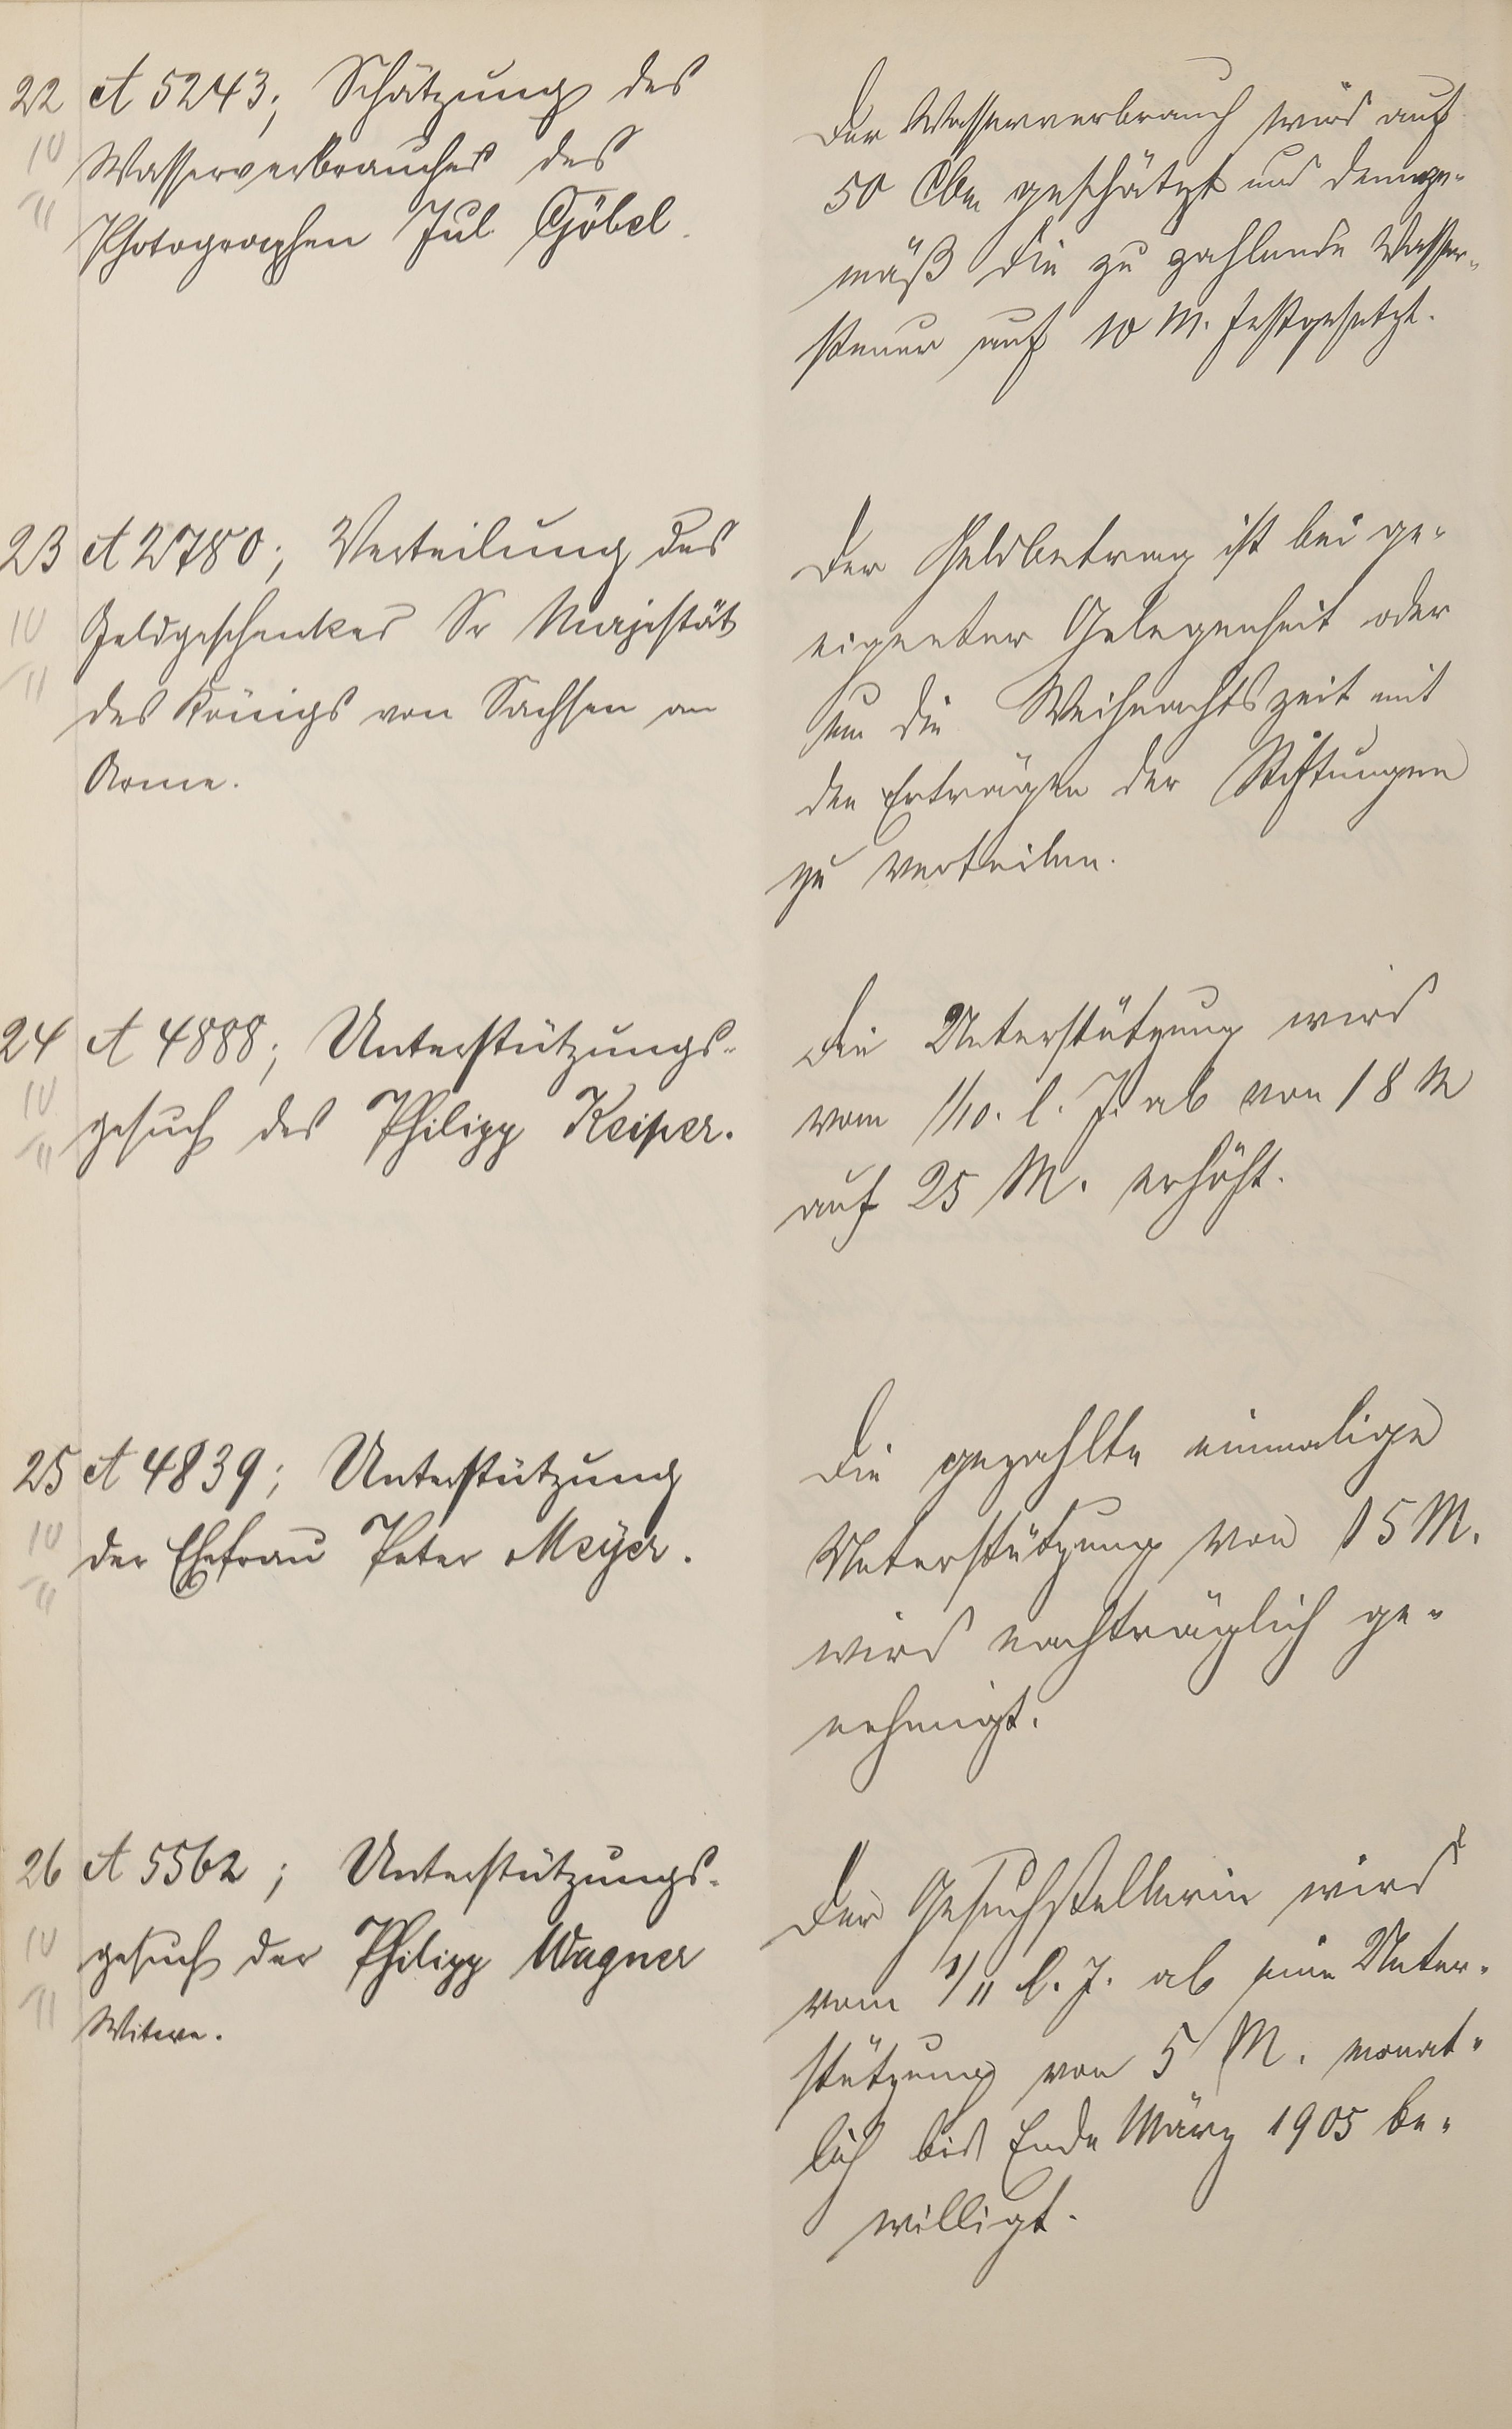 22 A 5243; Schätzung des
IV Wasserverbrauches des
II Photographen Jul. Göbel.
Der Wasserverbrauch wird auf
50 Cbm geschätzt und demge-
mäß die zu zahlende Wasser-
steuer auf 10 M. festgesetzt.
23 A 2780; Verteilung des
IV Geldgeschenkes Sr Majestät
II des Königs von Sachsen an
Arme.
Der Geldbetrag ist bei ge-
eigneter Gelegenheit oder
um die Weihnachtszeit mit
den Erträgen der Stiftungen
zu verteilen.
24 A 4888; Unterstützungs-
IV gesuch des Philipp Keiper.
II
Die Unterstützung wird
vom 1/10. l. J. ab von 18 M
auf 25 M. erhöht.
25 A 4839; Unterstützung
IV der Ehefrau Peter Meyer.
II
Die gezahlte einmalige
Unterstützung von 15 M.
wird nachträglich ge-
nehmigt.
26 A 5562; Unterstützungs-
IV gesuch der Philipp Wagner
II Witwe.
Der Gesuchstellerin wird
vom 1/11 l. J. ab eine Unter-
stützung von 5 M. monat-
lich bis Ende März 1905 be-
willigt.